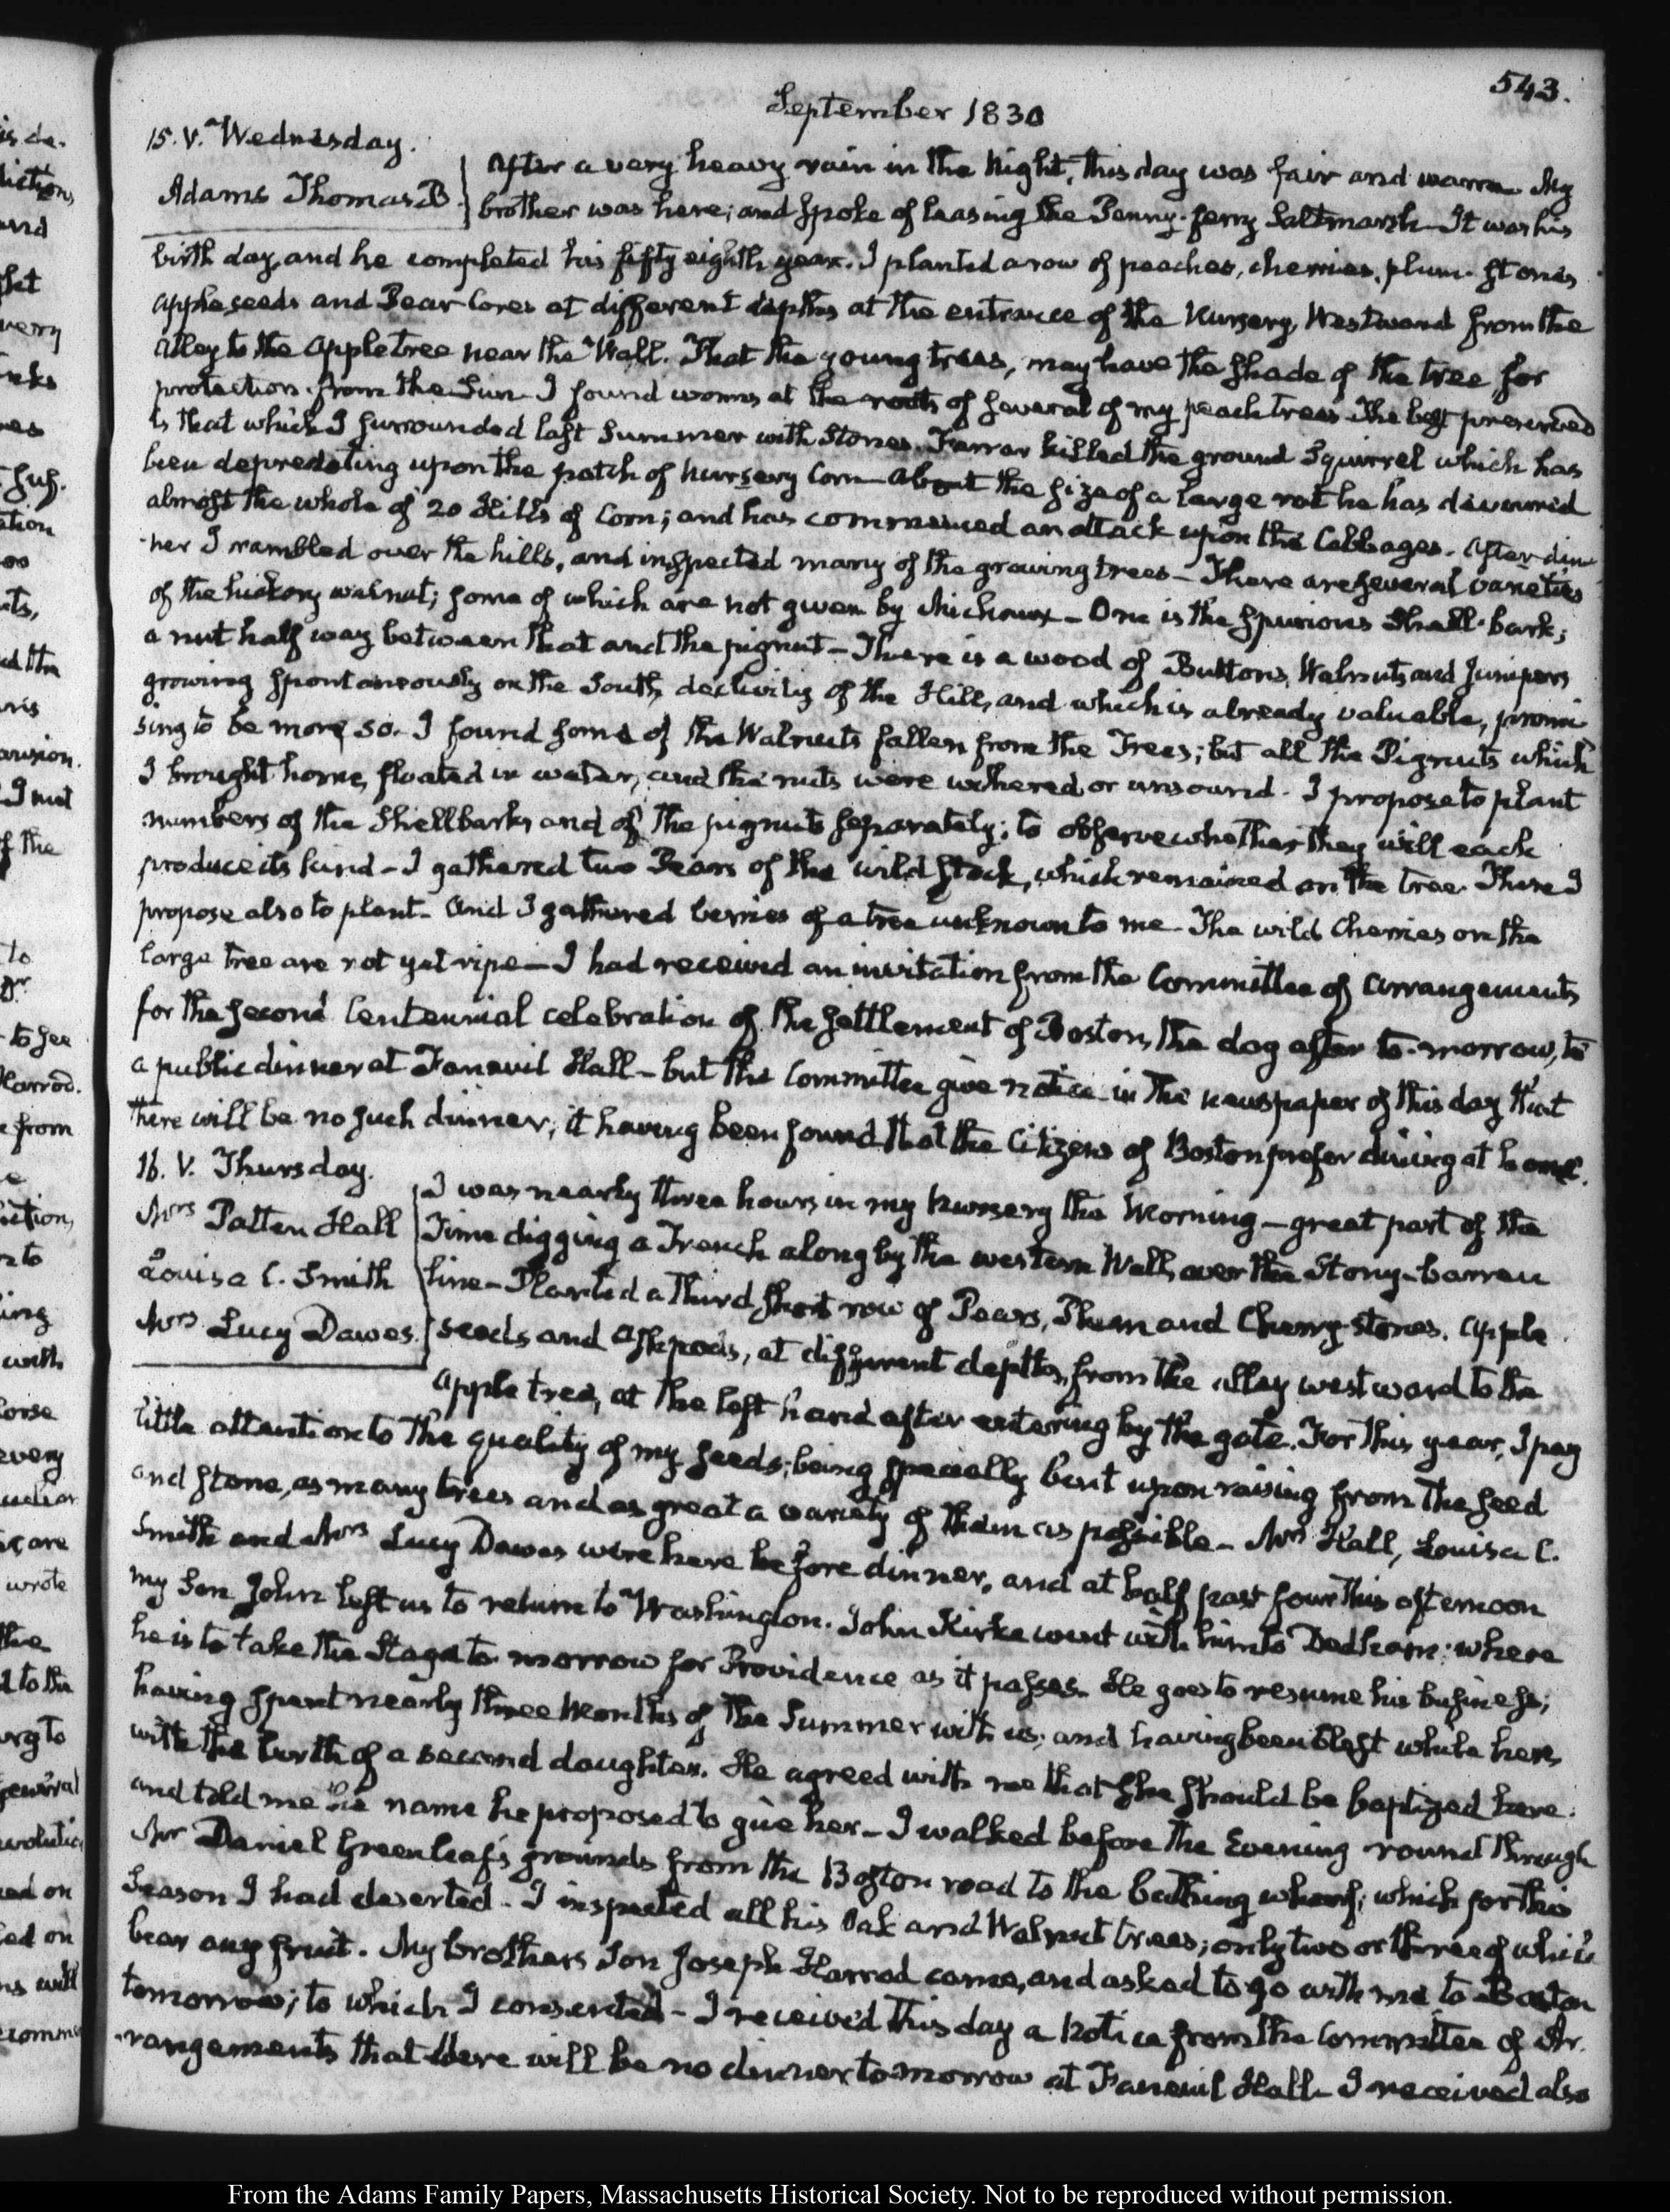 543.
September 1830
15. V. Wednesday.
Adams Thomas B.
After a very heavy rain in the Night, this day was fair and warm My
brother was here; and spoke of leasing the Penny-ferry Saltmarsh—It was his
birth day, and he completed his fifty eighth year. I planted a row of peaches, cherries, plum-stones
apple seeds and Pear Cores at different depths at the entrance of the Nursery, Westward from the
alley to the apple tree near the Wall. That the young trees, may have the shade of the tree for
protection from the Sun—I found worms at the roots of several of my peach trees—The best preserved
is that which I surrounded last Summer with Stones. Farrar killed the ground Squirrel which has
been depredating upon the patch of nursery Corn—about the size of a large rat he has devoured
almost the whole of 20 Hills of Corn; and has commenced an attack upon the Cabbages. After din-
-ner I rambled over the hills, and inspected many of the growing trees—There are several varieties
of the hickory walnut; some of which are not given by Michaux—One is the spurious Shall-bark;
a nut half way between that and the pignut—There is a wood of Buttons, Walnuts and Junipers
growing spontaneously on the South, declivity of the Hill, and which is already valuable, promi-
sing to be more so. I found some of the Walnuts fallen from the Trees; but all the Pignuts which
I brought home, floated in water, and the nuts were withered or unsound. I propose to plant
numbers of the Shellbarks and of the pignuts separately; to observe whether they will each
produce its kind—I gathered two Pears of the wild stock, which remained on the tree. These I
propose also to plant—And I gathered berries of a tree unknown to me—The wild Cherries on the
large tree are not yet ripe—I had received an invitation from the Committee of arrangements
for the second Centennial celebration of the settlement of Boston, the day after to-morrow, to
a public dinner at Faneuil Hall—but the Committee give notice in the newspaper of this day that
there will be no such dinner, it having been found that the Citizens of Boston prefer dining at home.
16. V. Thursday.
Mrs Patten Hall
Louisa C. Smith
Mrs Lucy Dawes.
I was nearly three hours in my Nursery this Morning—great part of the
Time digging a Trench along by the western Wall, over the Stony-barren
line—Planted a third short row of Pears, Plum and Cherry stones. Apple
seeds and Ashpods, at different depths, from the alley westward to the
apple tree, at the left hand after entering by the gate. For this year, I pay
little attention to the quality of my seeds; being specially bent upon raising from the seed
and stone, as many trees and as great a variety of them as possible—Mrs Hall, Louisa C.
Smith and Mrs Lucy Dawes were here before dinner, and at half past four this afternoon
my Son John left us to return to Washington. John Kirke went with him to Dedham; where
he is to take the Stage to-morrow for Providence as it passes. He goes to resume his business;
having spent nearly three Months of the Summer with us; and having been blest while here,
with the birth of a second daughter. He agreed with me that she should be baptized here.
and told me the name he proposed to give her—I walked before the Evening round through
Mr Daniel Greenleaf's grounds from the Boston road to the bathing wharf; which for this
Season I had deserted—I inspected all his Oak and Walnut trees; only two or three of which
bear any fruit. My brother's Son Joseph Harrod came, and asked to go with me to Boston
tomorrow; to which I consented—I received this day a Notice from the Committee of Ar-
-rangements that there will be no dinner to-morrow at Faneuil Hall—I received also
From the Adams Family Papers, Massachusetts Historical Society. Not to be reproduced without permission.